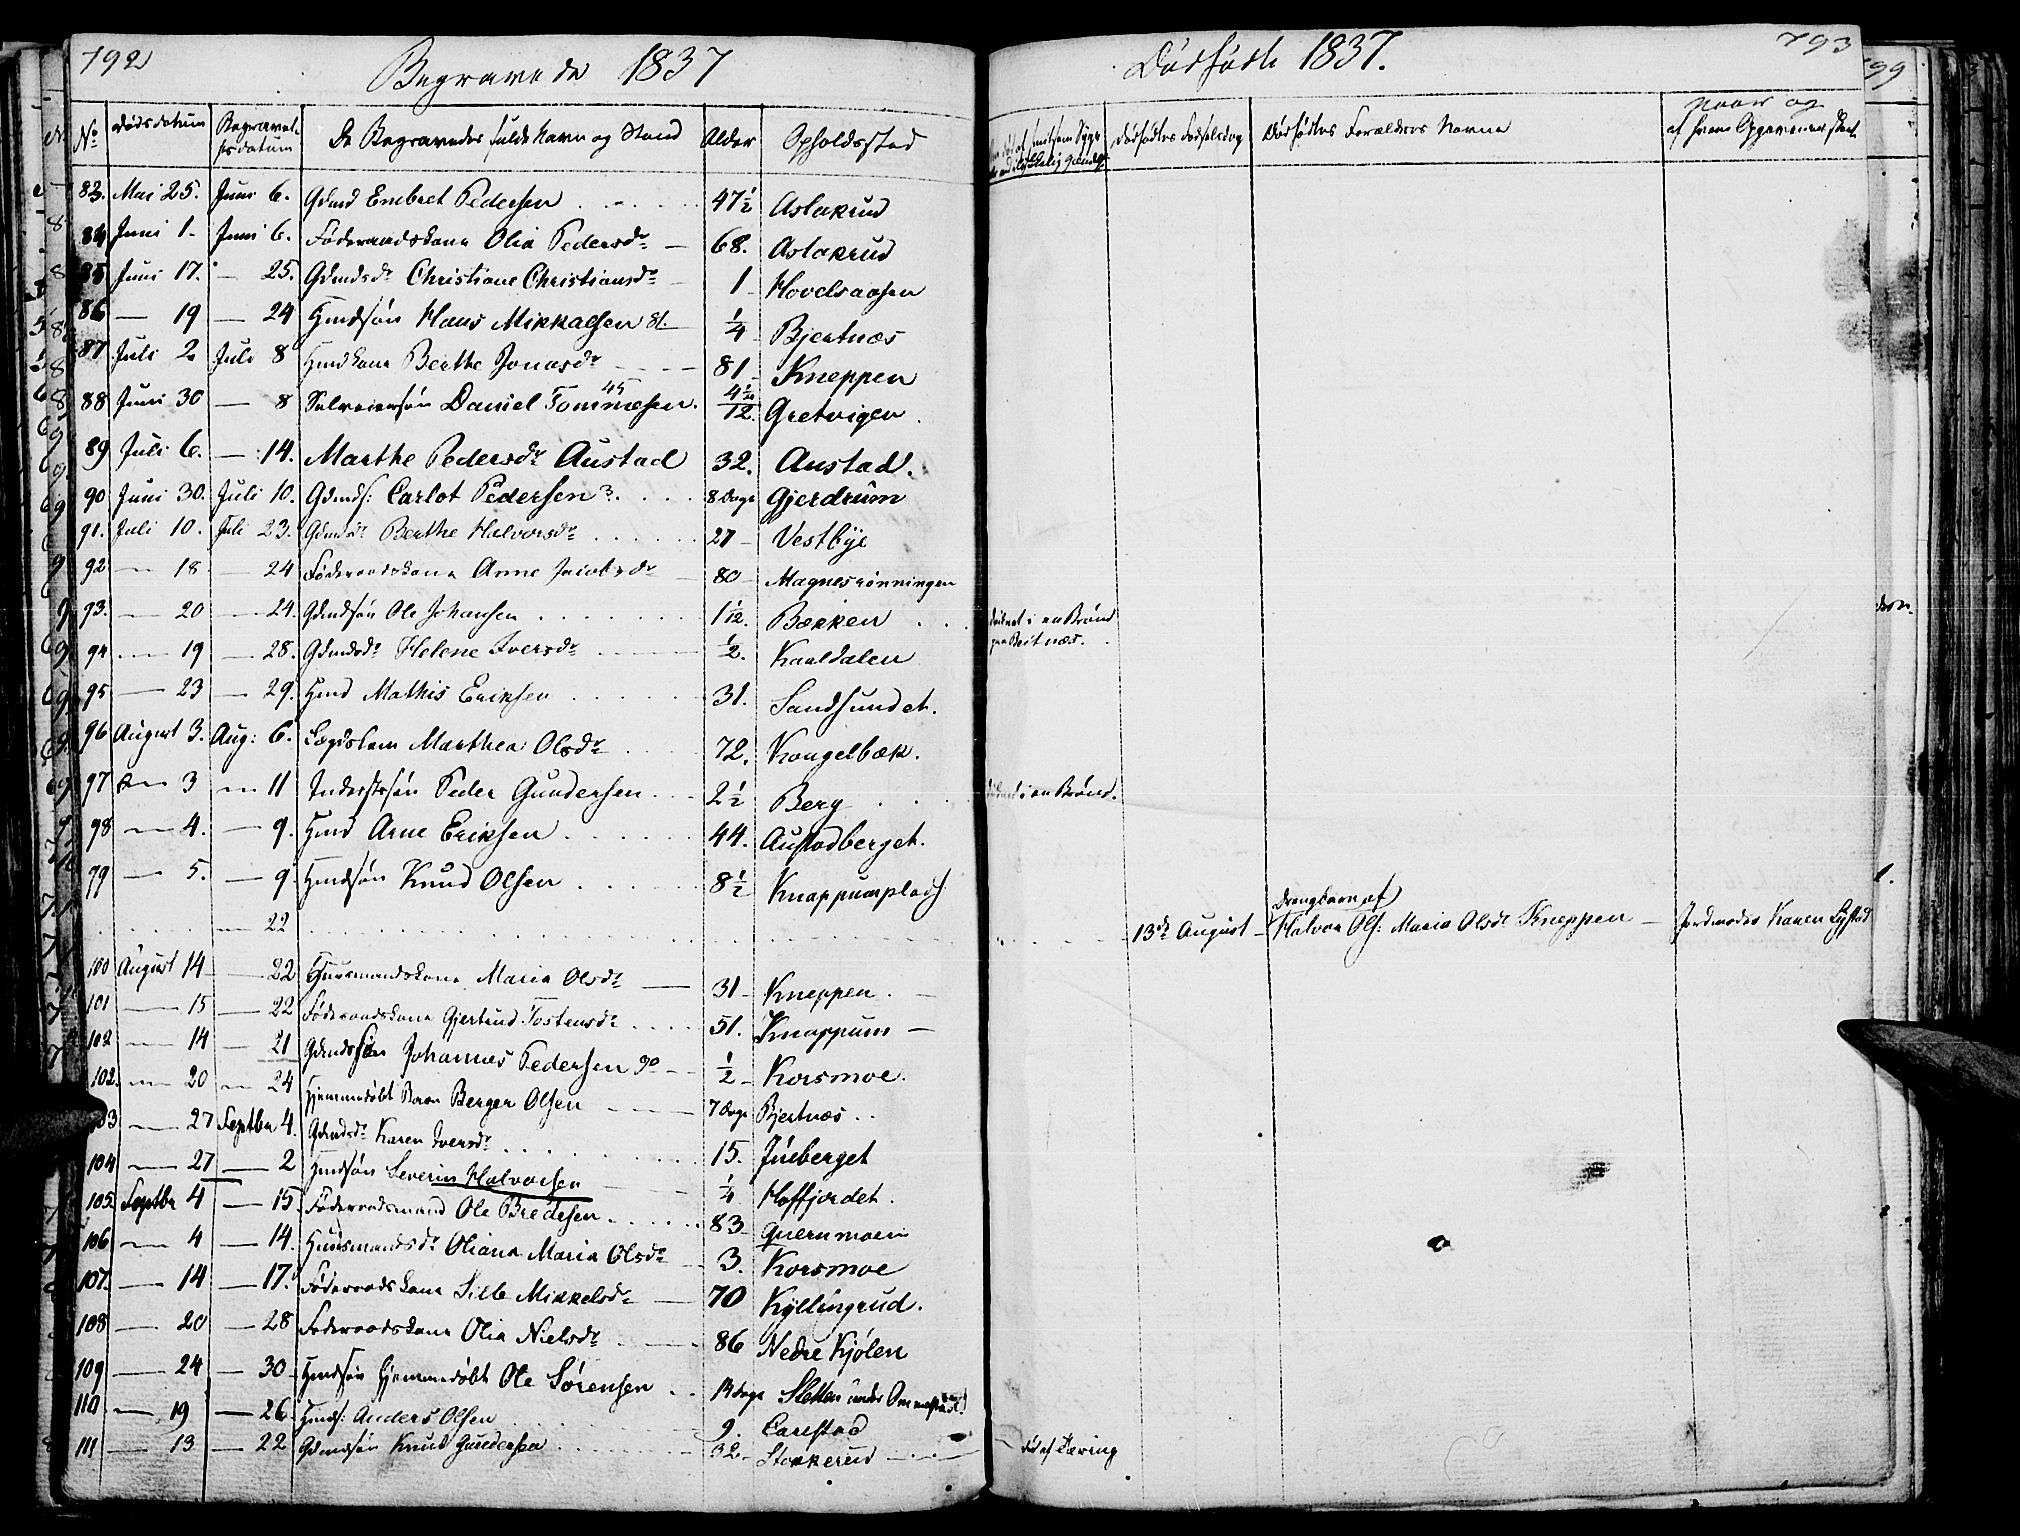 792
Begravede 1837
No Dødsdatum Begravelsesdatum De Begravedes fulde Navn og Stand Alder Opholdsstad
83. Mai 25. Juni 6. Gdmd Embret Pedersen 47½ Aslakrud
84 Juni 1. Juni 6. Føderaadskone Olia Pedersdr 68. Aslakrud
85 Juni 17. — 25. Gdmdsdr Christiane Christiansdr 1 Hovelsaasen
86 — 19 — 24 Hmdsøn Hans Mikkaelsen ¼ Bjertnæs
87 Juli 2 Juli 8 Hmdkone Berthe Jonasdr 81 Kneppen
88 Juni 30 — 8 Selveiersøn Daniel Tommesen. 4½/12 Gretvigen
89 Juli 6. — 14. Marthe Pedersdr Austad 32. Austad.
90 Juni 30. Juli 10. Gdmds: Carlot Pedersen 8 Dage Gjerdrum
91. Juli 10. Juli 23. Gdmdsdr Berthe Halvorsdr 27 Vestbye
92 — 18 — 24 Føderaadskone Anne Jacobsdr 80 Magnesrønningen
93. — 20 — 24. Gdmdsøn Ole Johansen 1 1/12. Bækken
94 — 19 — 28. Gdmdsdr Helene Iversdr ½. Kaaldalen
95 — 23 — 29. Hmd Mathis Eriksen 31. Sandsundet.
96 August 3. Aug: 6. Lægdslem Marthea Olsdr 72. Kongelbæk.
97 — 3 — 11 Inderstsøn Peder Gundersen 2½ Berg
98 — 4. — 9. Hmd Arne Eriksen 44. Austadberget.
99 — 5. — 9. Hmdsøn Knud Olsen 8½ Knappumplads
— 22
100 August 14 — 22 Huusmandskone Maria Olsdr 31 Kneppen.
101 — 15 — 22 Føderaadskone Gjertrud Tostensdr 51. Knappum —
102 — 14 — 21 Gdmdssøn Johannes Pedersen ½ Korsmoe.
102. — 20 — 24 Hjemmedøbt Barn Berger Olsen 7 Dage Bjertnæs
103 — 27 Septbr 4. Gdmdsdr Karen Iversdr 15. Juberget
104 — 27 — 2 Hmdsøn Severin Halvorsen ¼ Hoffjordet.
105. Septbr 4 — 15. Føderaadsmand Ole Bredesen 83 Quernmoen
106 — 4 — 14. Huusmandsdr Oliana Maria Olsdr 3. Korsmoe
107. — 14 — 17. Føderaadskone Sille Mikkelsdr 70 Kyllingrud.
108 — 20 — 28 Føderaadskone Olia Nielsdr 86 Nedre Kjølen
109 — 24 — 30 Hmdsøn hjemmedøbt Ole Sørensen Dage Sletten under
110 — 19 — 26. Hmds: Anders Olsen 9. Carlstad
111 — 13 — 22 Gdmdsøn Knud Gundersen 32 Stokkerud
Dødfødte 1837.
793
Dødfødtes Fødselsdag Dødfødtes Forældres Navne Naar og af hvem Opgaven er skeet
druknet i en Brønd
paa Beitnæs.
druknet i en Brønd.
13de August Drengebarn af
Halvor Ols: Maria Olsdr Kneppen Jordmoder Karen Lystad
død af Tæring
799